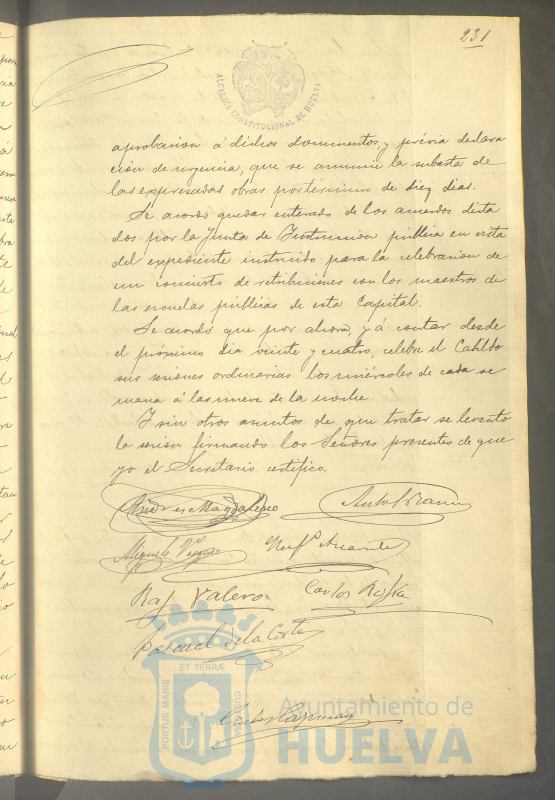 231
ALCALDIA CONSTITUCIONAL DE HUELVA
aprobacion á dichos documentos, y prévia declara
ción de urgencia, que se anuncie la subasta de
las expresadas obras por término de diez dias.
Se acordó quedar enterado de los acuerdos dicta
dos por la Junta de Instruccion pública en vista
del expediente instruido para la celebracion de
un concierto de retribuciones con los maestros de
las escuelas públicas de esta Capital.
Se acordó que por ahora, y á contar desde
el próximo dia veinte y cuatro, celebre el Cabildo
sus sesiones ordinarias los miércoles de cada se
mana á las nueve de la noche.
Y sin otros asuntos de que tratar se levantó
la sesion firmando los Señores presentes de que
yo el Secretario certifico.
Andres Magdaleno
Raf Valero
Carlos
Pascual de la Corte
PORTUS MARIS ET TERRÆ CUSTODIA
Ayuntamiento de
HUELVA